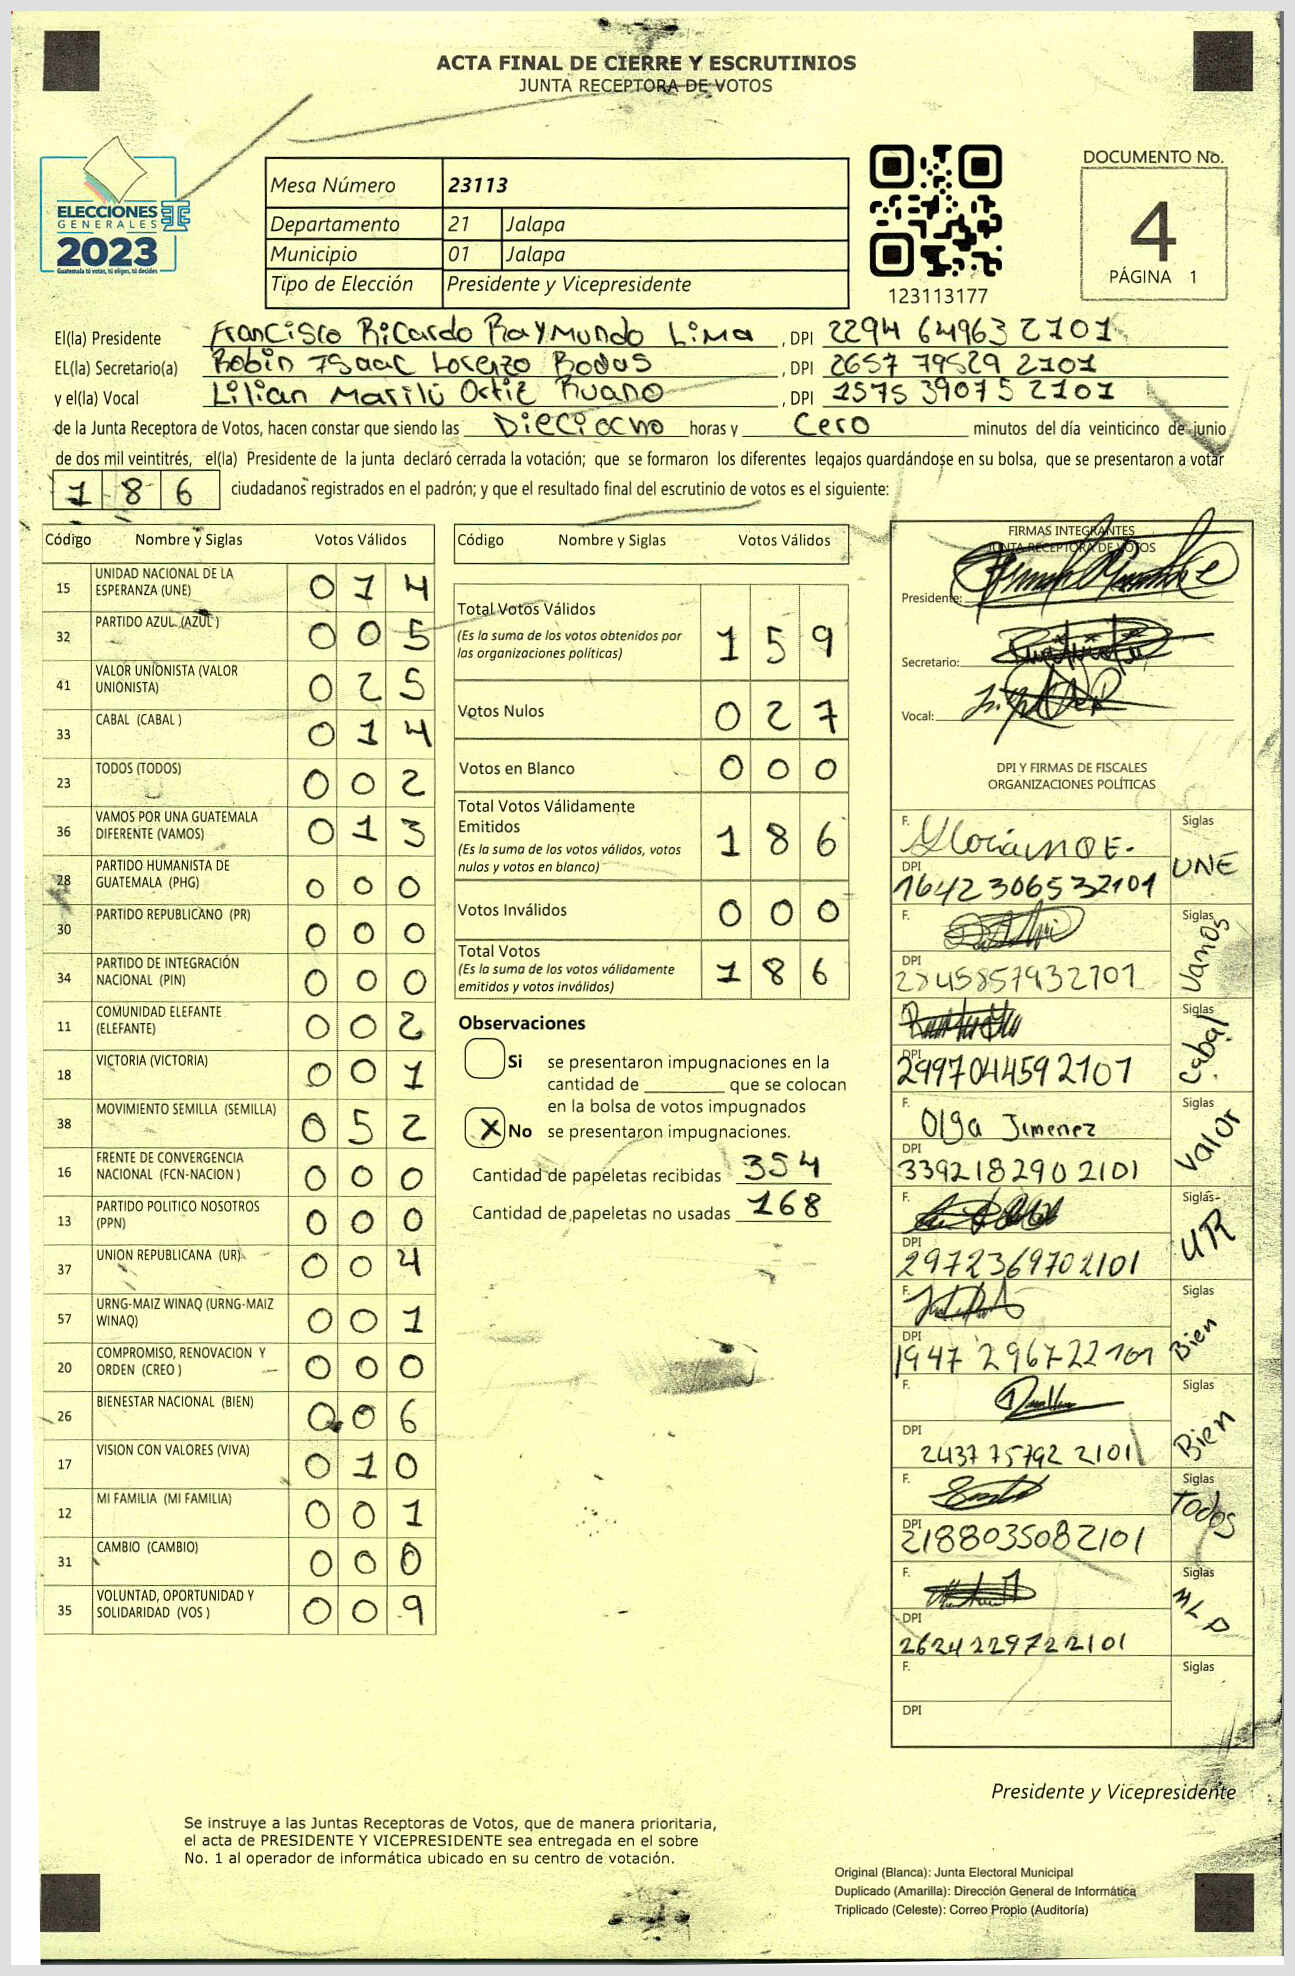 ACTA FINAL DE CIERRE Y ESCRUTINIOS
JUNTA RECEPTORA DE VOTOS
ELECCIONES
GENERALES
2023
Guatemala tú votas, tú eliges, tú decides
Mesa Número 23113
Departamento 21 Jalapa
Municipio 01 Jalapa
Tipo de Elección Presidente y Vicepresidente
123113177
DOCUMENTO No.
4
PÁGINA 1
El(la) Presidente Francisco Ricardo Raymundo Lima , DPI 2294 64963 2101
EL(la) Secretario(a) Robin Isaac Lorenzo Rodas , DPI 2657 79529 2101
y el(la) Vocal Lilian Marilú Ortiz Ruano , DPI 1575 39075 2101
de la Junta Receptora de Votos, hacen constar que siendo las Dieciocho horas y Cero minutos del día veinticinco de junio
de dos mil veintitrés, el(la) Presidente de la junta declaró cerrada la votación; que se formaron los diferentes legajos guardándose en su bolsa, que se presentaron a votar
186 ciudadanos registrados en el padrón; y que el resultado final del escrutinio de votos es el siguiente:
Código Nombre y Siglas Votos Válidos
15 UNIDAD NACIONAL DE LA ESPERANZA (UNE) 014
32 PARTIDO AZUL (AZUL ) 005
41 VALOR UNIONISTA (VALOR UNIONISTA) 025
33 CABAL (CABAL ) 014
23 TODOS (TODOS) 002
36 VAMOS POR UNA GUATEMALA DIFERENTE (VAMOS) 013
28 PARTIDO HUMANISTA DE GUATEMALA (PHG) 000
30 PARTIDO REPUBLICANO (PR) 000
34 PARTIDO DE INTEGRACIÓN NACIONAL (PIN) 000
11 COMUNIDAD ELEFANTE (ELEFANTE) 002
18 VICTORIA (VICTORIA) 001
38 MOVIMIENTO SEMILLA (SEMILLA) 052
16 FRENTE DE CONVERGENCIA NACIONAL (FCN-NACION ) 000
13 PARTIDO POLITICO NOSOTROS (PPN) 000
37 UNION REPUBLICANA (UR) 004
57 URNG-MAIZ WINAQ (URNG-MAIZ WINAQ) 001
20 COMPROMISO, RENOVACION Y ORDEN (CREO ) 000
26 BIENESTAR NACIONAL (BIEN) 006
17 VISION CON VALORES (VIVA) 010
12 MI FAMILIA (MI FAMILIA) 001
31 CAMBIO (CAMBIO) 000
35 VOLUNTAD, OPORTUNIDAD Y SOLIDARIDAD (VOS ) 009
Código Nombre y Siglas Votos Válidos
Total Votos Válidos 159
(Es la suma de los votos obtenidos por
las organizaciones políticas)
Votos Nulos 027
Votos en Blanco 000
Total Votos Válidamente
Emitidos 186
(Es la suma de los votos válidos, votos
nulos y votos en blanco)
Votos Inválidos 000
Total Votos 186
(Es la suma de los votos válidamente
emitidos y votos inválidos)
Observaciones
Si se presentaron impugnaciones en la
cantidad de ________ que se colocan
en la bolsa de votos impugnados
X No se presentaron impugnaciones.
Cantidad de papeletas recibidas 354
Cantidad de papeletas no usadas 168
FIRMAS INTEGRANTES
JUNTA RECEPTORA DE VOTOS
Presidente:
Secretario:
Vocal:
DPI Y FIRMAS DE FISCALES
ORGANIZACIONES POLÍTICAS
F. Siglas
DPI UNE
1642306532101
F. Siglas
DPI Vamos
2845857932101
F. Siglas
DPI Cabal
2997044592101
F. Olga Jimenez Siglas
DPI Valor
3392182902101
F. Siglas
DPI UR
2972369702101
F. Siglas
DPI Bien
1947 296722101
F. Siglas
DPI Bien
2437 75792 2101
F. Siglas
DPI Todos
2188035082101
F. Siglas
DPI MLP
2624229722101
F. Siglas
DPI
Presidente y Vicepresidente
Se instruye a las Juntas Receptoras de Votos, que de manera prioritaria,
el acta de PRESIDENTE Y VICEPRESIDENTE sea entregada en el sobre
No. 1 al operador de informática ubicado en su centro de votación.
Original (Blanca): Junta Electoral Municipal
Duplicado (Amarilla): Dirección General de Informática
Triplicado (Celeste): Correo Propio (Auditoría)